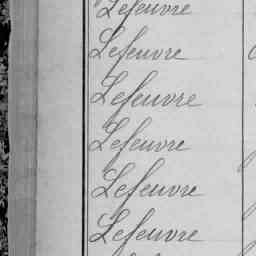 Lefeuvre
Lefeuvre
Lefeuvre
Lefeuvre
Lefeuvre
Lefeuvre